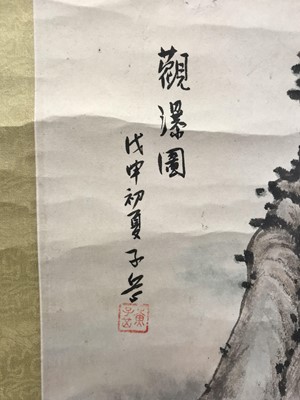 觀瀑圖
戊申初夏子兵